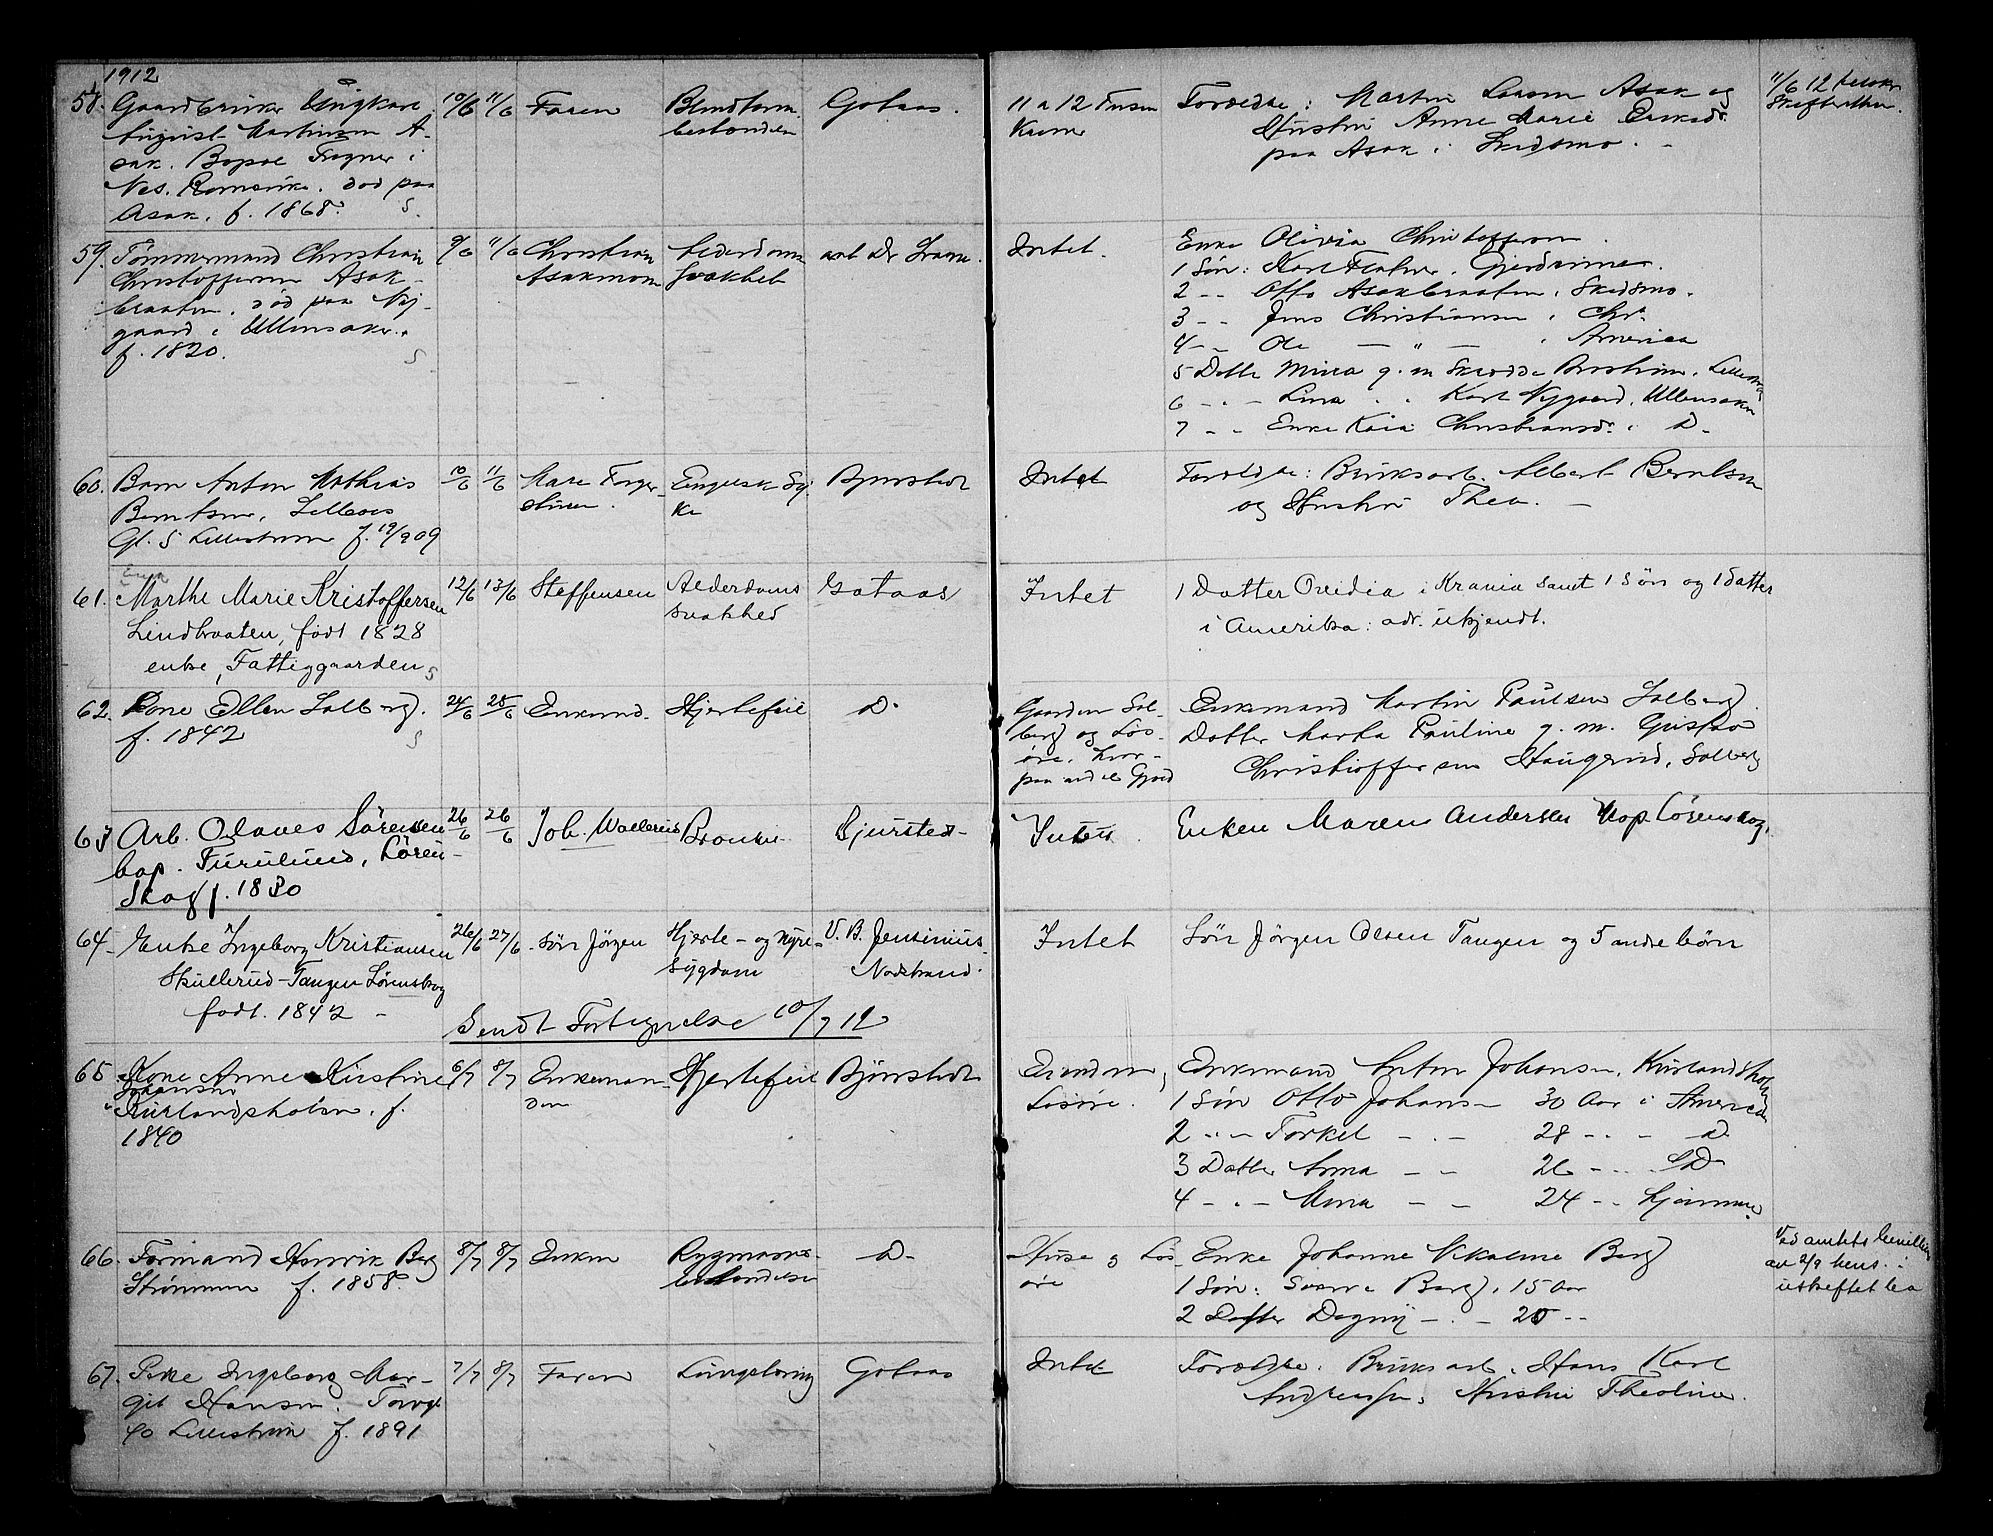 1912
58. Gaardbruker Ungkarl 10/6 11/6 Faren Blindtarm- Gotaas. 11 a 12 Tusen Forældre: Martin Larsen Asak og 11/6 12
August Martinsen A- betændelse Kroner Hustru Anne Marie Eriksdr.
sak. Bopæl Fagner i paa Asak i Skedsmo.
Nes. Romerike. død paa
Asak. f. 1868. S.
59. Tømmermand Christian 9/6 11/6 Christian Alderdoms Intet. Enke Olivia Christoffersen.
Christoffersen Asak- Asakmoen svakhet 1 Søn: Karl
braaten. død paa Ny- 2 - - Otto Asakbraaten, Skedsmo.
gaard i Ullensaker. 3 - - Jens Christiansen i Chr.
f. 1820. S 4 - - Ole — " — i America
5 Datter Mina g. m
6 - - - Lina . . Karl Nygaard, Ullensaker
7 - - Enke Kaia Christiansdr. i D.
60. Barn Anton Mathias 10/6 11/6 Engelsk Sy- Bjørnstedt Intet Forældre: Bruksarb. Albert Berntsen
Berntsen, ke og Hustru Thea. —
Gt. 5 Lillestrøm f. 19/9 09
Enke
61. Marthe Marie Kristoffersen 12/6 13/6 Steffensen Alderdoms Gotaas Intet 1 Datter Ovidia i Krania samt 1 søn og 1 datter
Lindbraaten, født 1828 svakhed i Amerika: adr. ukjendt.
enke, Fattiggaarden S
62. Kone Ellen Solberg. 24/6 25/6 Enkemd. Hjertefeil D. Gaarden Sol- Enkemand Martin Paulsen Solberg.
f. 1842 S berg og Løs- Datter Marta Pauline g. m. Gustav
øre. Christoffersen Haugerud, Solberg
63 Arb. Olaves Sørensen 26/6 26/6 Joh. Wallerius Bjursted- Intet. Enken Maren Andersen bop. Lørenskog.
bop. Furulund, Løren-
skog f. 1830
64- Enke Ingeborg Kristiansen 26/6 27/6 Søn Jørgen Hjerte- og nyre- V. B. Jensinius Intet Søn Jørgen Olsen Tangen og 5 andre børn
Skullerud-Tangen Lørenskog sygdom Nordstrand.
født. 1842 -
Sendt Fortegnelse 10/7 12
65 Kone Anne Kirstine 6/7 8/7 Enkeman- Hjertefeil Bjørnstedt Eiendom, Enkemand Anton Johansen, Kurlandsholm
Johansen den Løsøre. 1 Søn Otto Johansen 30 Aar i America
Kurlandsholm. f. 2 - - Torkel - . - 28 - - - D.
1840 3 Datter Anna - - 26 - . . D
4 - . - Mina - - 24 - - hjemme.
66. Formand Henrik Berg 8/7 8/7 Enken Rygmarvs- D- Huse og Løs- Enke Johanne Berg Ved amtets bevilling
Strømmen f. 1858. betændelse øre 1 Søn: Sverre Berg, 15 Aar av 2/9 hens. i
2 Datter Dagny - . - 20 - - uskiftet bo
67. Pike Ingeborg Mar- 7/7 8/7 Faren Lungetæring Gotaas Intet Forældre: Bruksarb. Hans Karl
git Hansen. Andreassen, Hustru Theoline.
40 Lillestrøm f. 1891